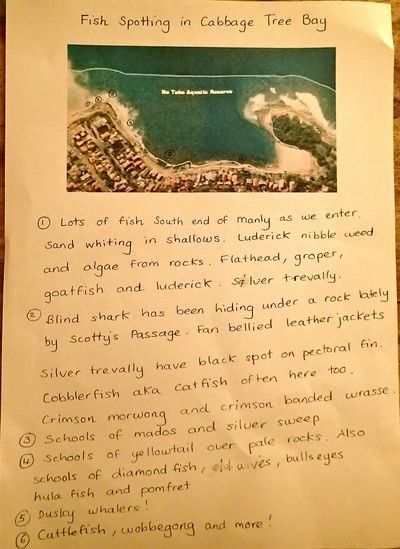 Fish Spotting in Cabbage Tree Bay
No Take Aquatic Reserve
① Lots of fish South end of Manly as we enter.
Sand whiting in shallows. Luderick nibble weed
and algae from rocks. Flathead, groper,
goatfish and luderick. Silver trevally.
② Blind shark has been hiding under a rock lately
by Scotty's Passage. Fan bellied leatherjackets
Silver trevally have black spot on pectoral fin.
Cobblerfish aka catfish often here too.
Crimson morwong and crimson banded wrasse.
③ Schools of mados and silver sweep
④ Schools of yellowtail over pale rocks. Also
schools of diamond fish, old wives, bullseyes
hula fish and pomfret
⑤ Dusky whalers!
⑥ Cuttlefish, wobbegong and more!